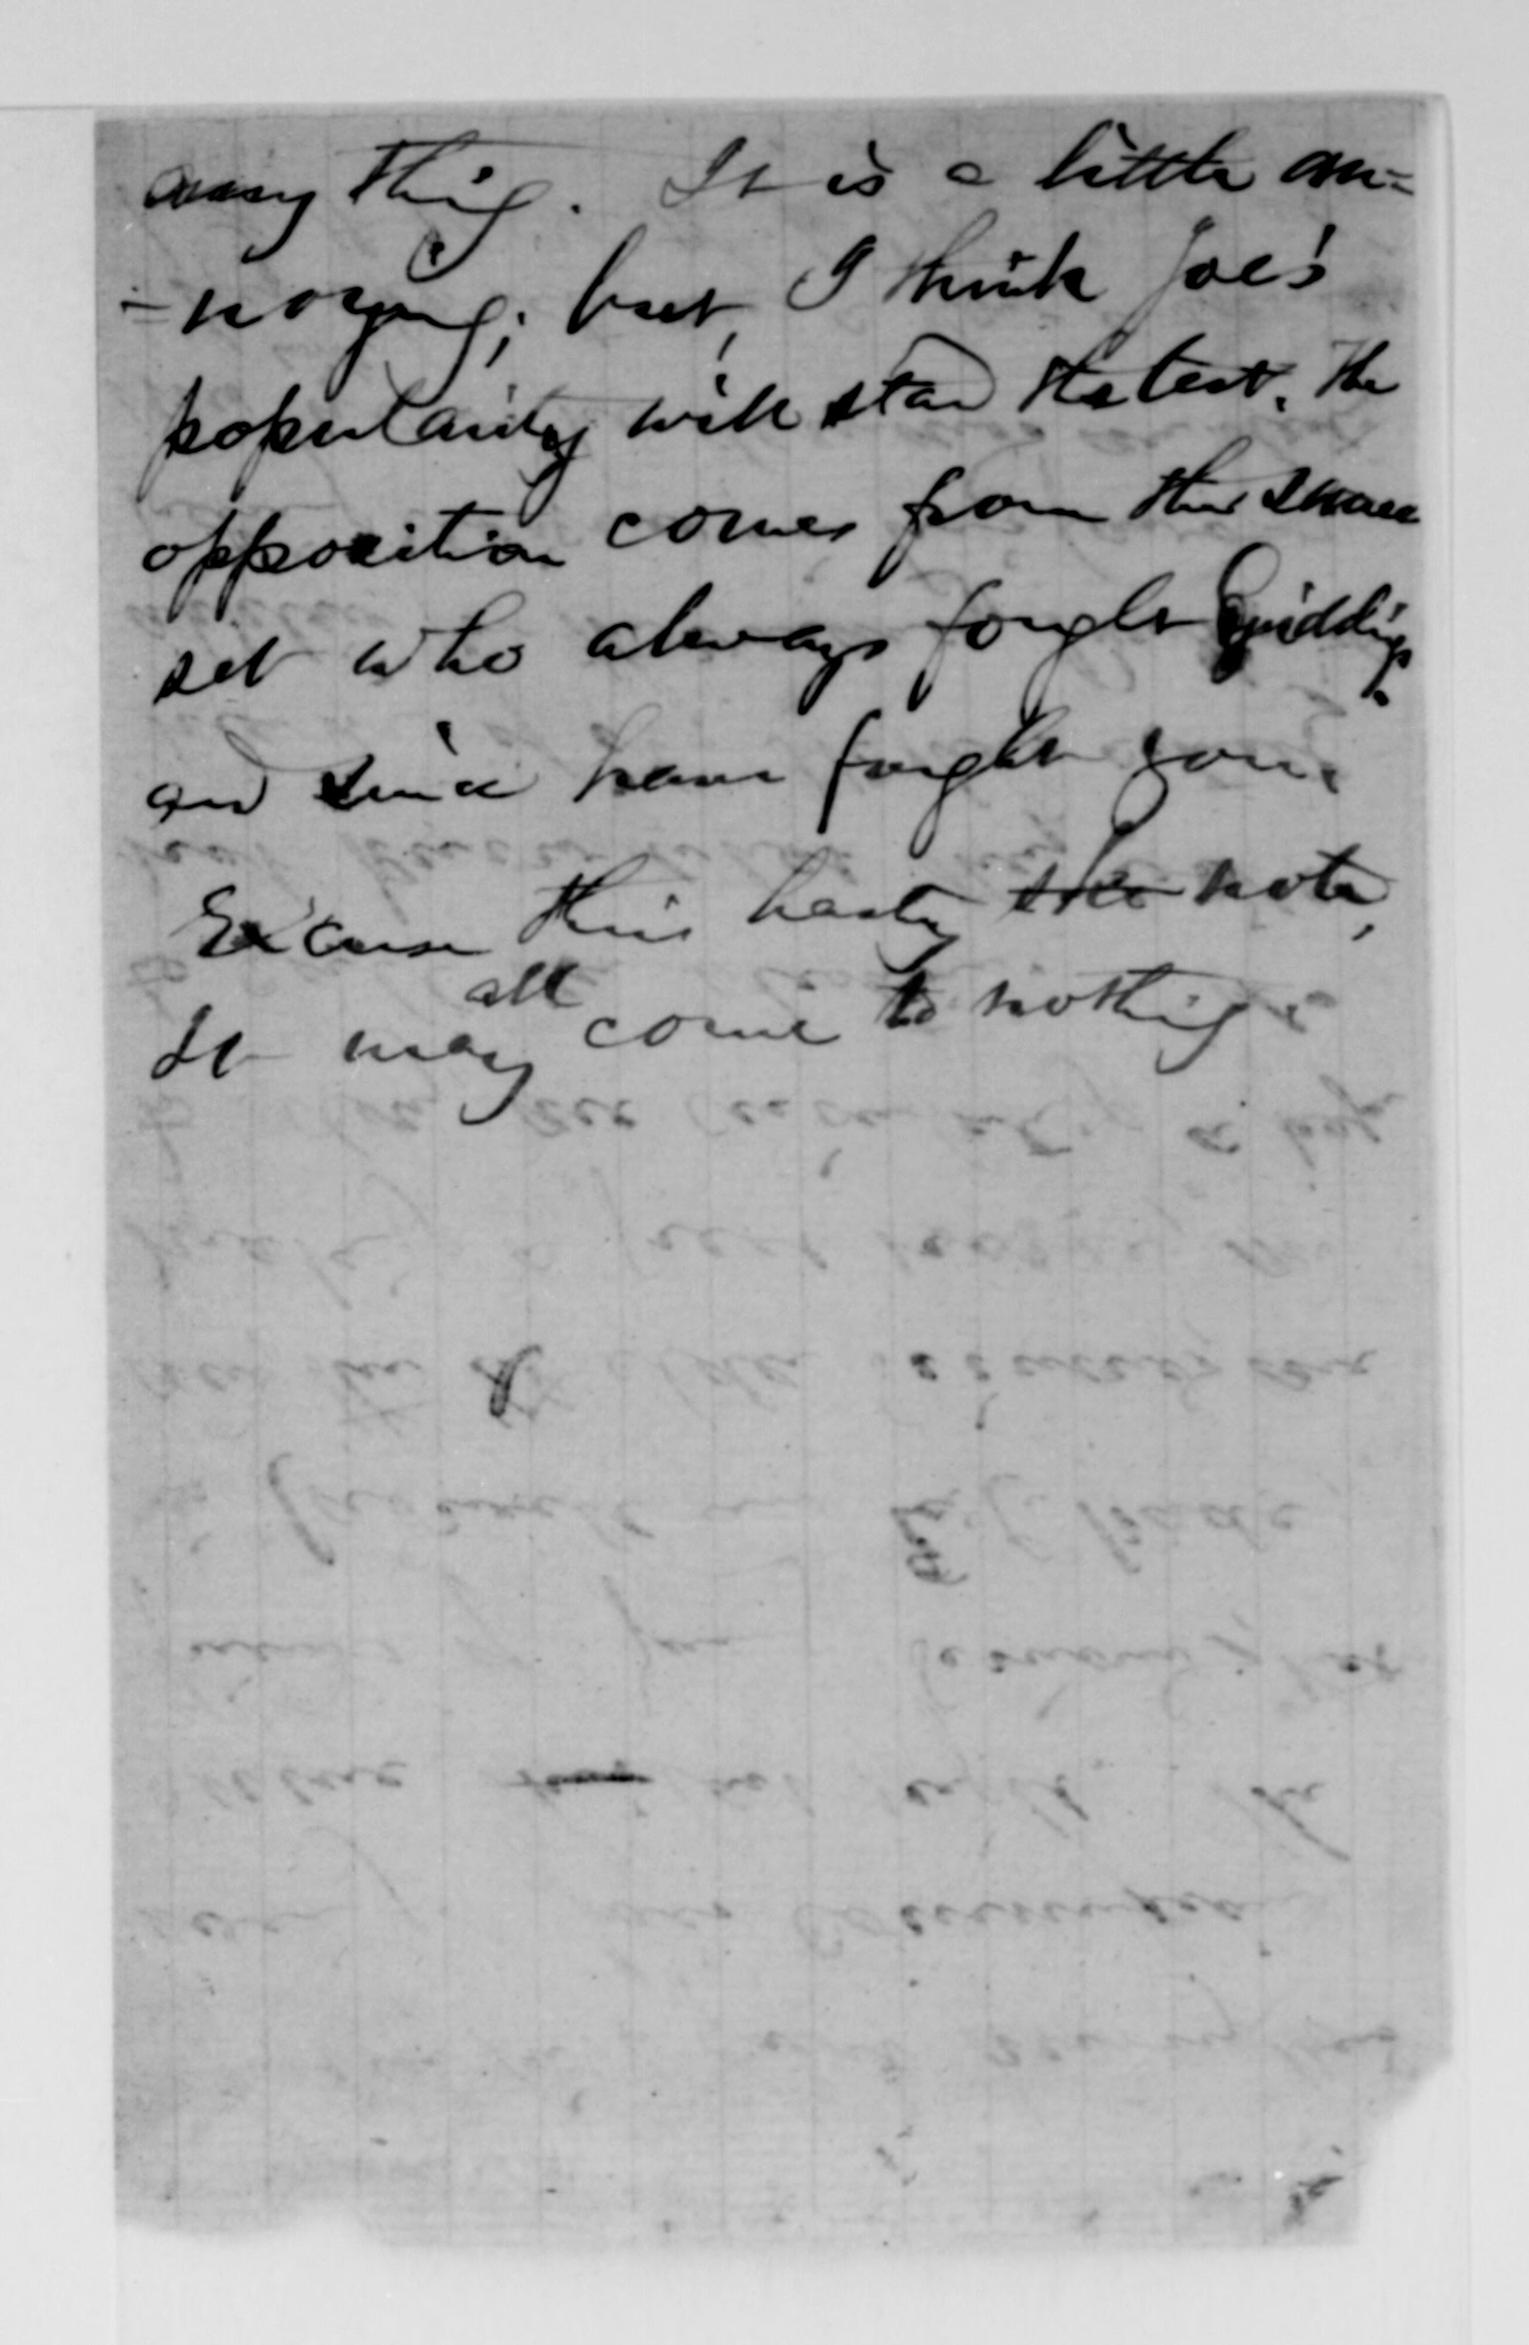 any thing. It is a little an=
=noying; but, I think Joe's
popularity will stand the test. The
opposition comes from the small
set who always fought Giddings.
and since have fought you.
Excuse this hasty note,
It may all come to nothing.